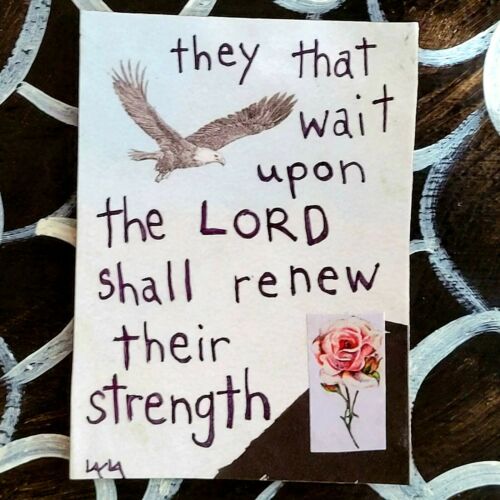 they that
wait
upon
the LORD
shall renew
their
strength